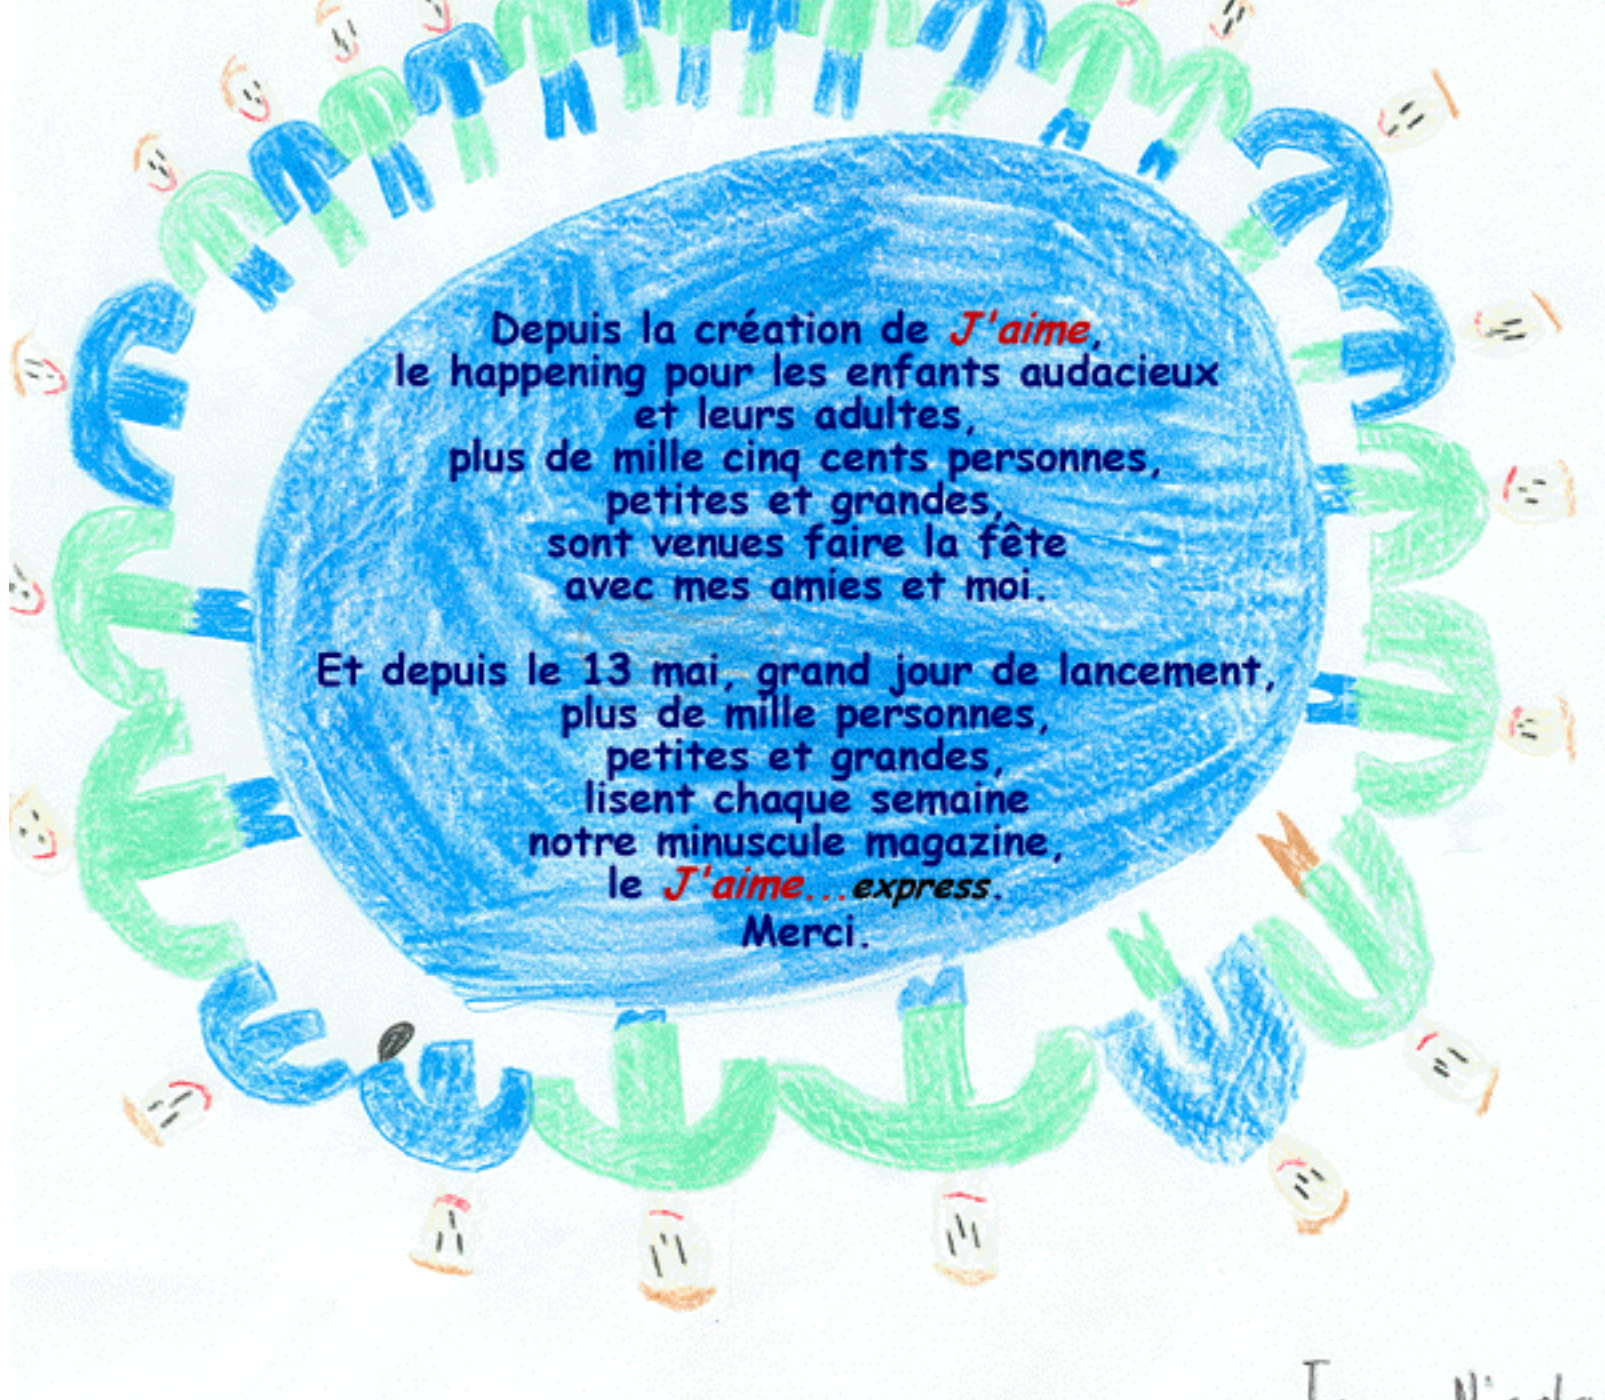 Depuis la création de J'aime,
le happening pour les enfants audacieux
et leurs adultes,
plus de mille cinq cents personnes,
petites et grandes,
sont venues faire la fête
avec mes amies et moi.
Et depuis le 13 mai, grand jour de lancement,
plus de mille personnes,
petites et grandes,
lisent chaque semaine
notre minuscule magazine,
le J'aime...express.
Merci.